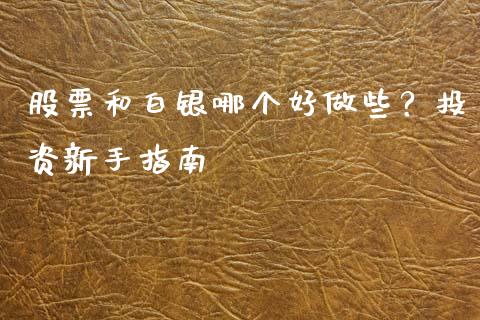 股票和白银哪个好做些？投
资新手指南